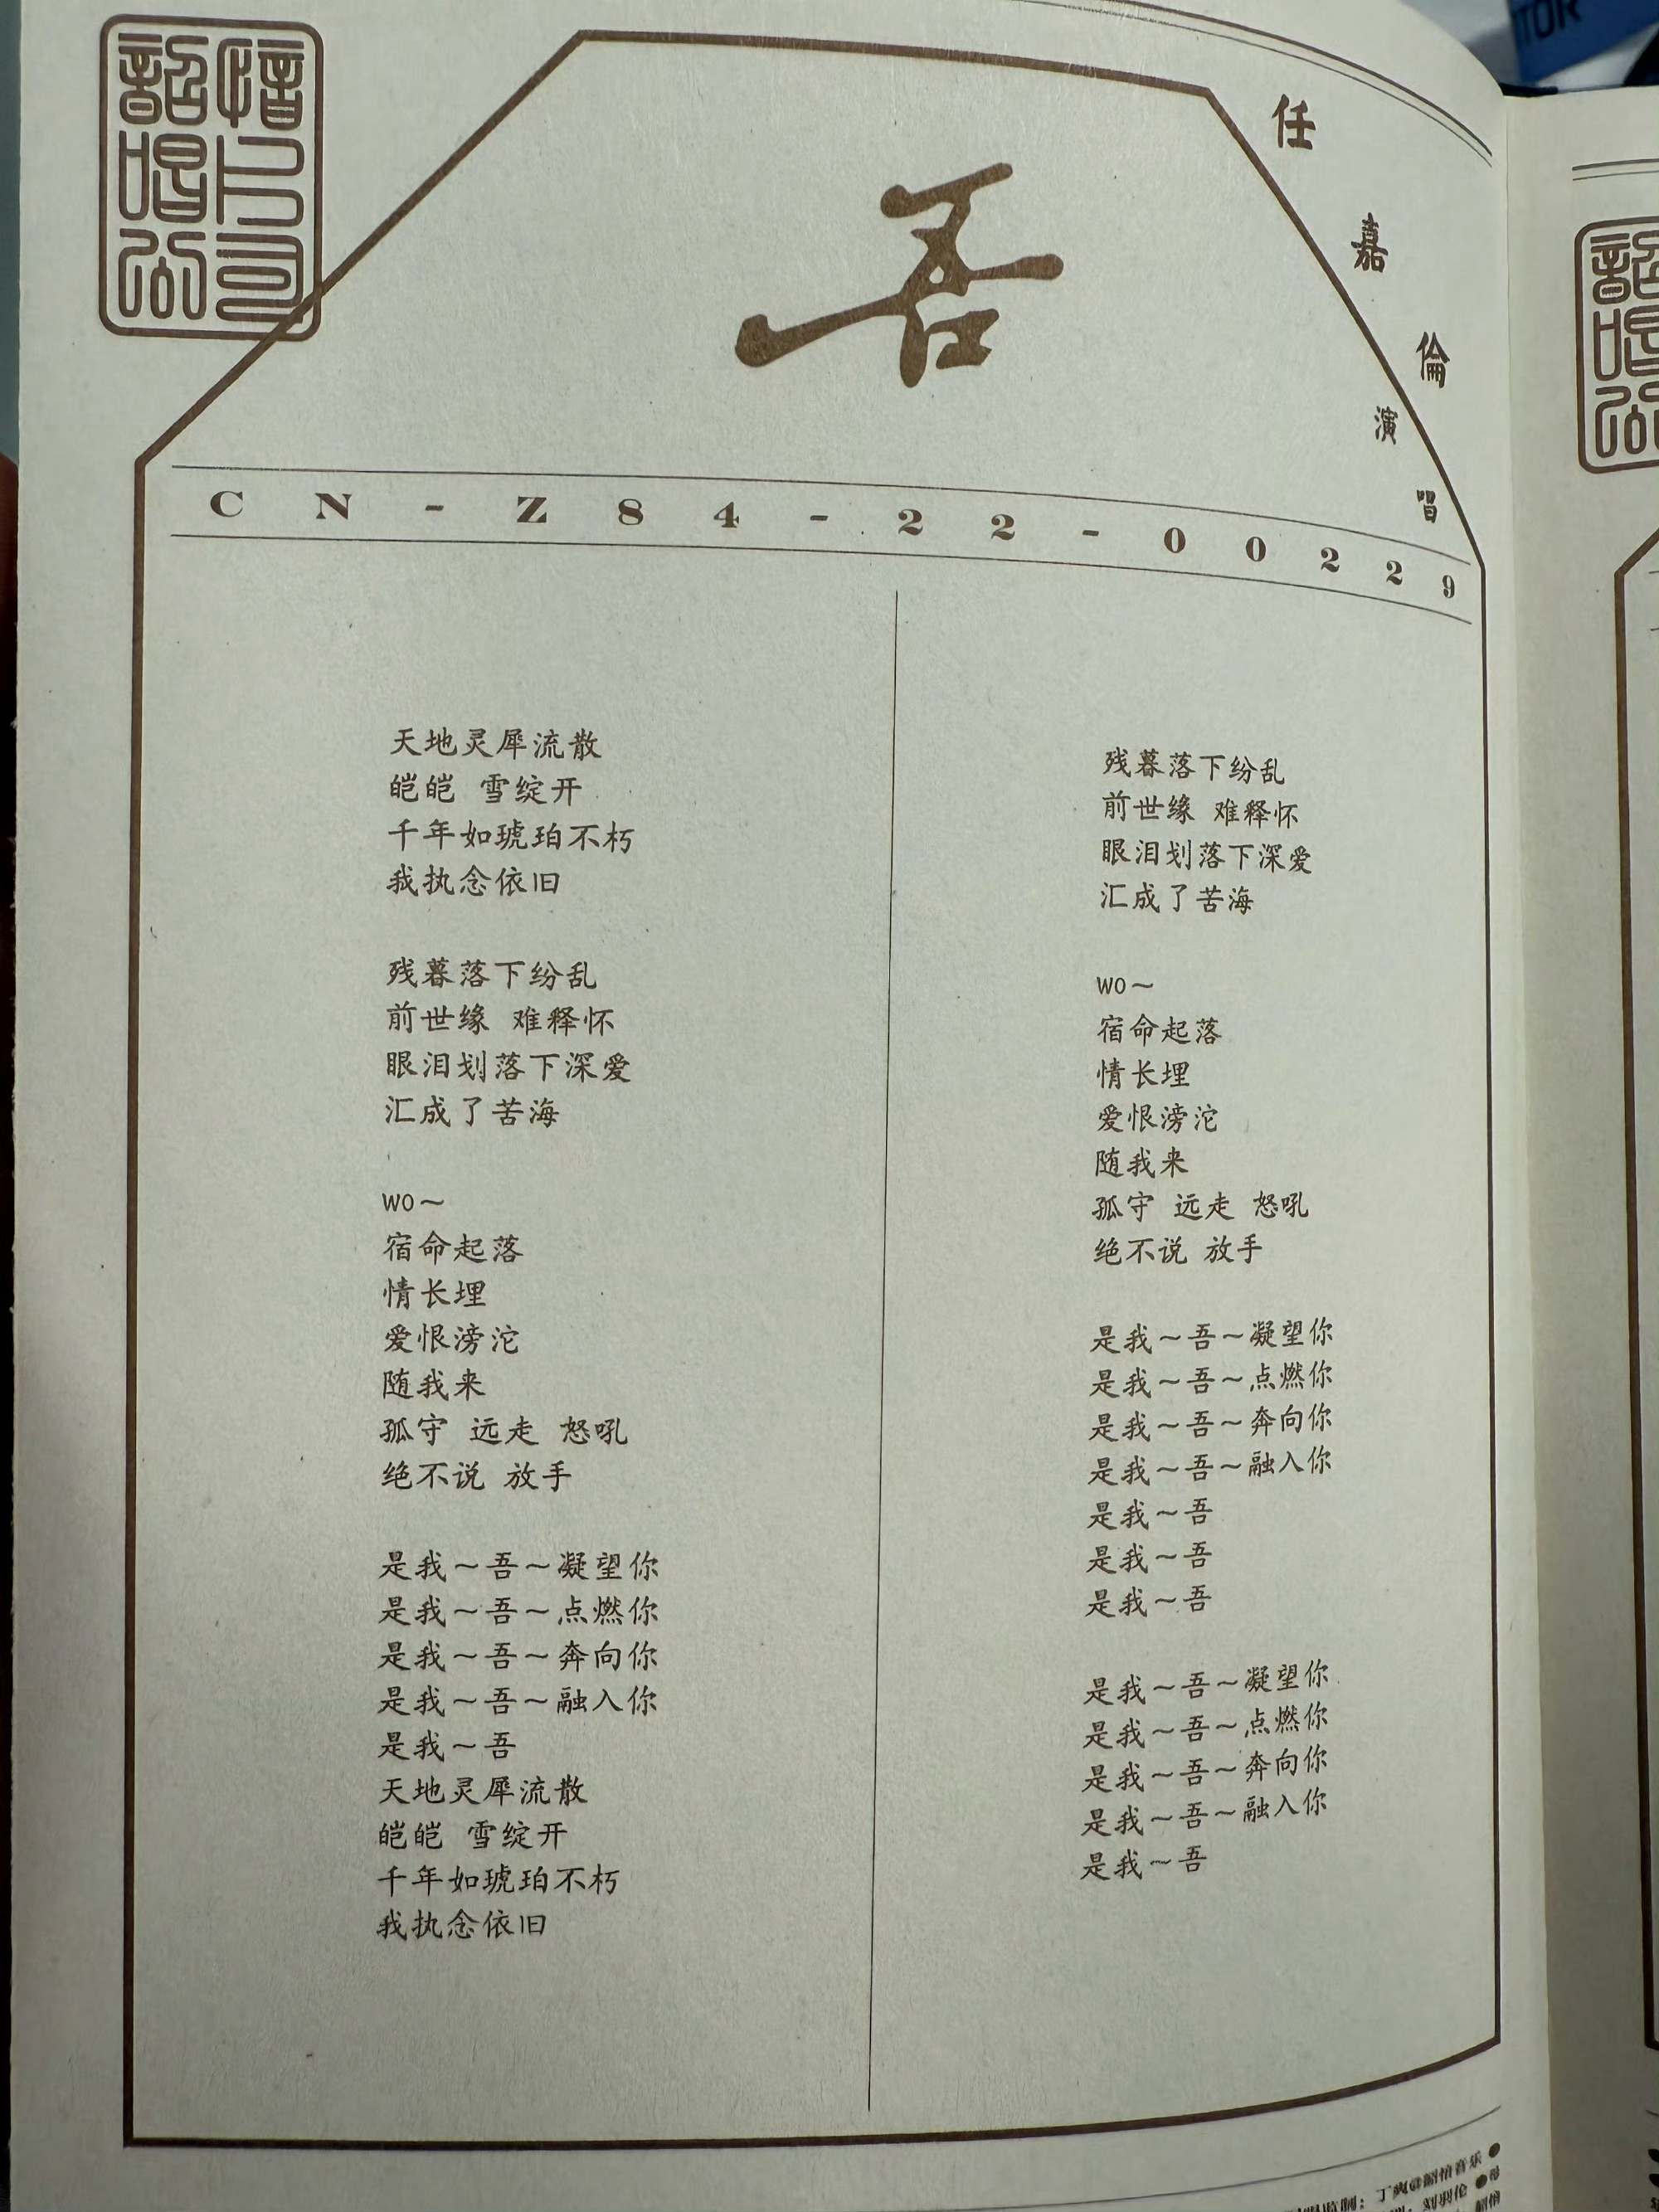 吾
任嘉倫
演唱
CN-Z84-22-00229
天地灵犀流散
皑皑 雪绽开
千年如琥珀不朽
我执念依旧
残暮落下纷乱
前世缘 难释怀
眼泪划落下深爱
汇成了苦海
wo~
宿命起落
情长埋
爱恨滂沱
随我来
孤守 远走 怒吼
绝不说 放手
是我~吾~凝望你
是我~吾~点燃你
是我~吾~奔向你
是我~吾~融入你
是我~吾
天地灵犀流散
皑皑 雪绽开
千年如琥珀不朽
我执念依旧
残暮落下纷乱
前世缘 难释怀
眼泪划落下深爱
汇成了苦海
wo~
宿命起落
情长埋
爱恨滂沱
随我来
孤守 远走 怒吼
绝不说 放手
是我~吾~凝望你
是我~吾~点燃你
是我~吾~奔向你
是我~吾~融入你
是我~吾
是我~吾
是我~吾
是我~吾~凝望你
是我~吾~点燃你
是我~吾~奔向你
是我~吾~融入你
是我~吾
丁爽@韶愔音乐
TOR